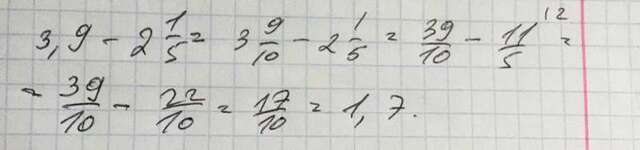 3,9 - 2 1/5 = 3 9/10 - 2 1/5 = 39/10 - 11/5 ^12 =
= 39/10 - 22/10 = 17/10 = 1,7.